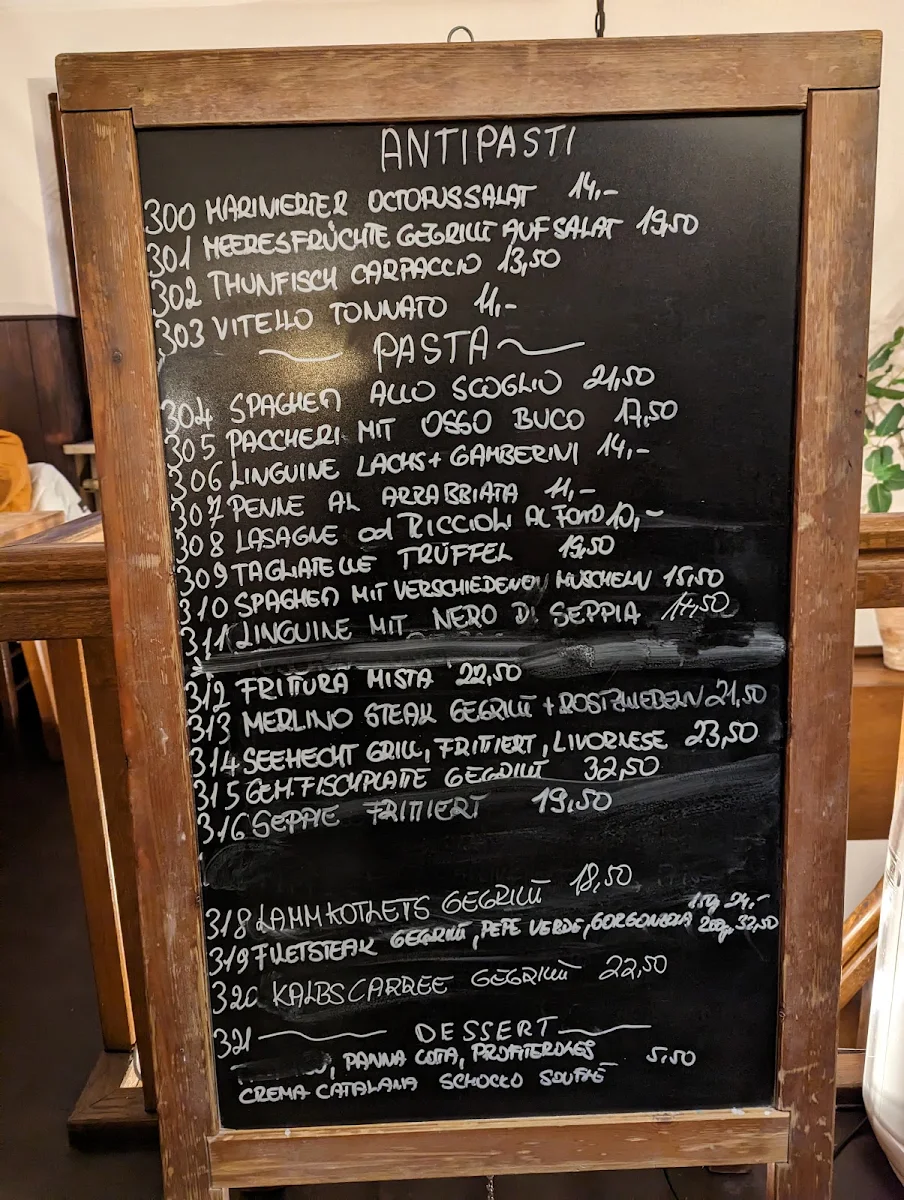 ANTIPASTI
300 MARINIERTER OCTOPUSSALAT 14,-
301 MEERESFRÜCHTE GEGRILLT AUF SALAT 19,50
302 THUNFISCH CARPACCIO 13,50
303 VITELLO TONNATO 11,-
PASTA
304 SPAGHETTI ALLO SCOGLIO 21,50
305 PACCHERI MIT OSSO BUCO 17,50
306 LINGUINE LACHS + GAMBERINI 14,-
307 PENNE AL ARRABBIATA 11,-
308 LASAGNE od RICCIOLI AL FORNO 10,-
309 TAGLIATELLE TRÜFFEL 19,50
310 SPAGHETTI MIT VERSCHIEDENEN MUSCHELN 15,50
311 LINGUINE MIT NERO DI SEPPIA 17,50
312 FRITTURA MISTA 22,50
313 MERLINO STEAK GEGRILLT + ROSTZWIEBELN 21,50
314 SEEHECHT GRILL, FRITIERT, LIVORNESE 23,50
315 GEM. FISCHPLATTE GEGRILLT 32,50
316 SEPPIE FRITIERT 19,50
318 LAMMKOTLETS GEGRILLT 18,50
319 FILETSTEAK GEGRILLT, PEPE VERDE, GORGONZOLA 150g 24,- 200g 32,50
320 KALBSCARREE GEGRILLT 22,50
321 DESSERT
, PANNA COTA, PROFITEROLES 5,50
CREMA CATALANA SCHOCKO SOUFFLÉ